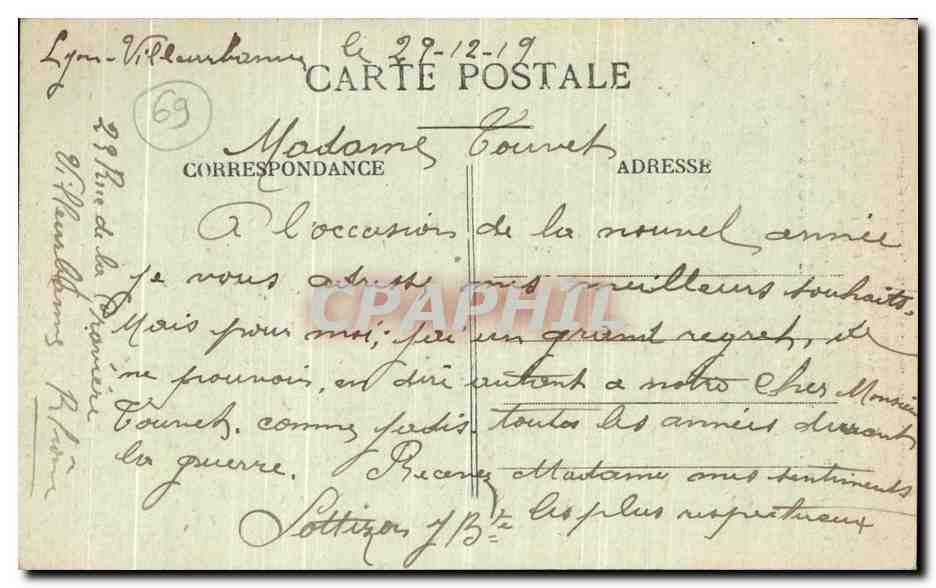 Lyon-Villeurbanne le 29-12-19
CARTE POSTALE
69
Madame Touvet
CORRESPONDANCE
ADRESSE
A l'occasion de la nouvel année
je vous adresse mes meilleurs souhaits.
Mais pour moi; j'ai un grand regret, de
ne pouvoir, en dire autant a notre Cher Monsieur
Touvet. comme jadis. toutes les années durant
la guerre. Recevez Madame mes sentiments
les plus respectueux
Sottizon J Bte
29 Rue de la
Villeurbanne Rhône
CPAPHIL